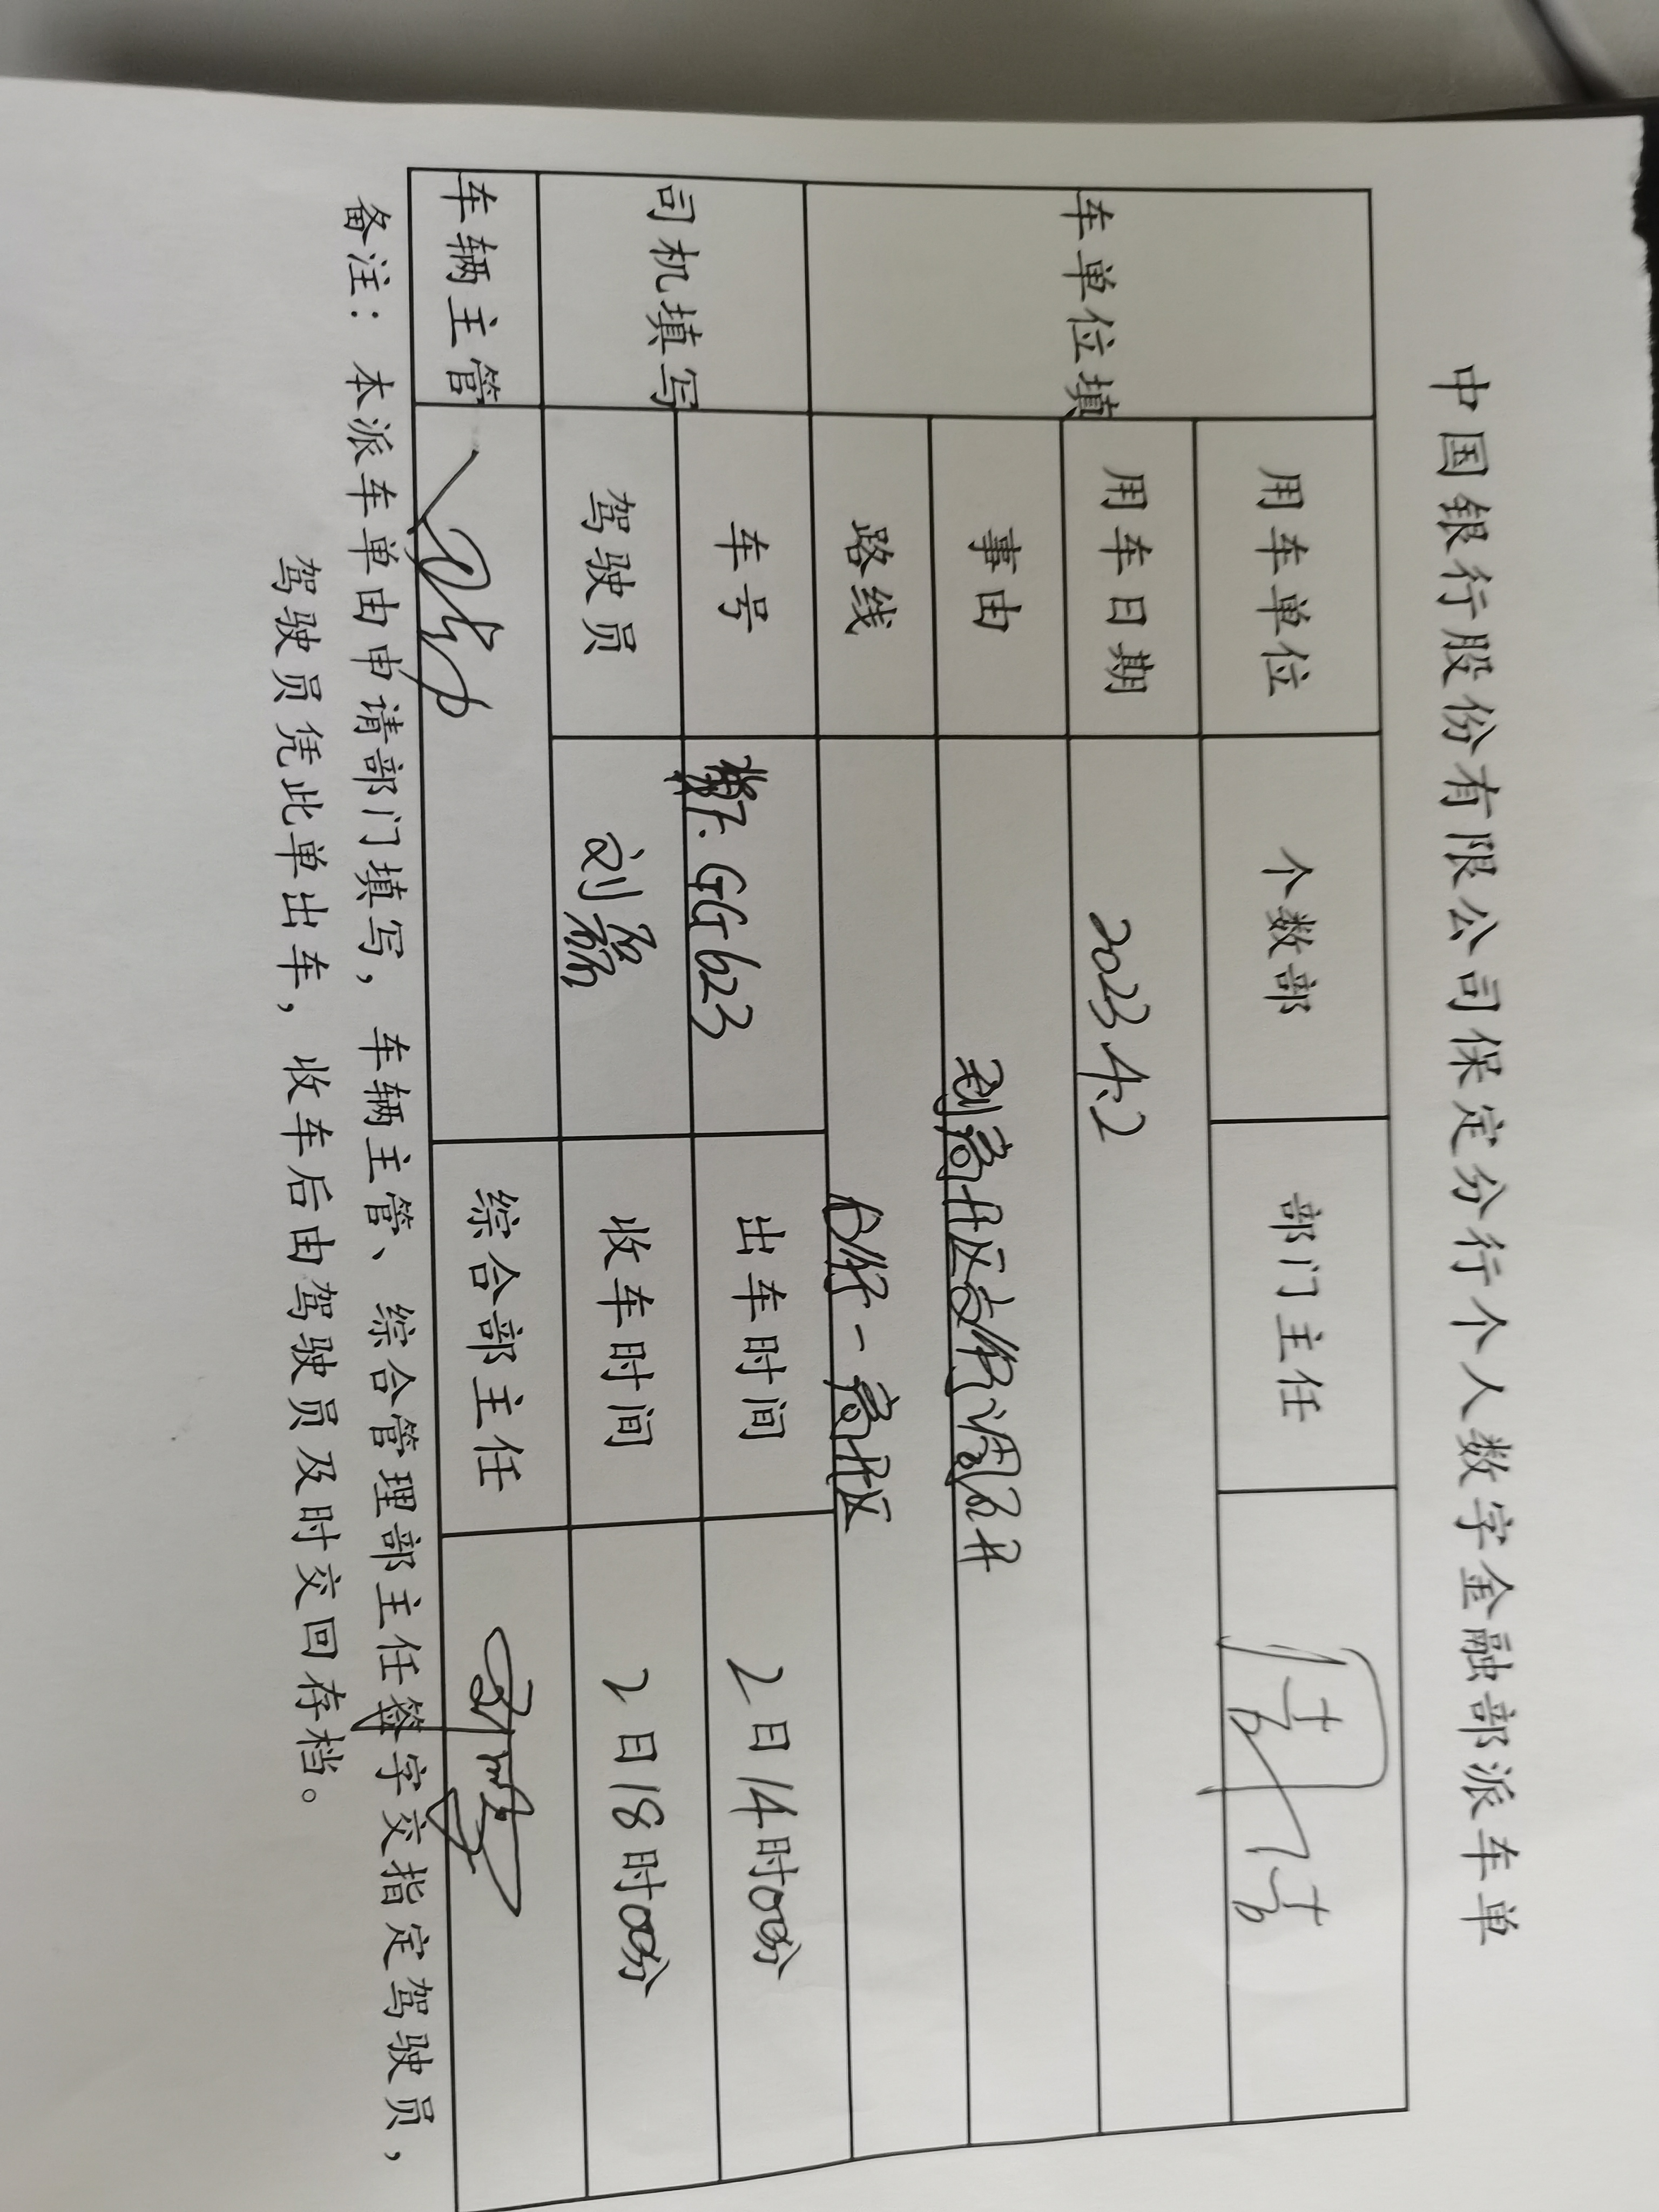 中国银行股份有限公司保定分行个人数字金融部派车单
车单位填
用车单位 个数部 部门主任
用车日期 2023.4.2
事由 到高开区支行调设备
路线 分行-高开区
司机填写
车号 GG623 出车时间 2日14时00分
驾驶员 刘磊 收车时间 2日18时00分
车辆主管 综合部主任
备注：本派车单由申请部门填写，车辆主管、综合管理部主任签字交指定驾驶员，
驾驶员凭此单出车，收车后由驾驶员及时交回存档。